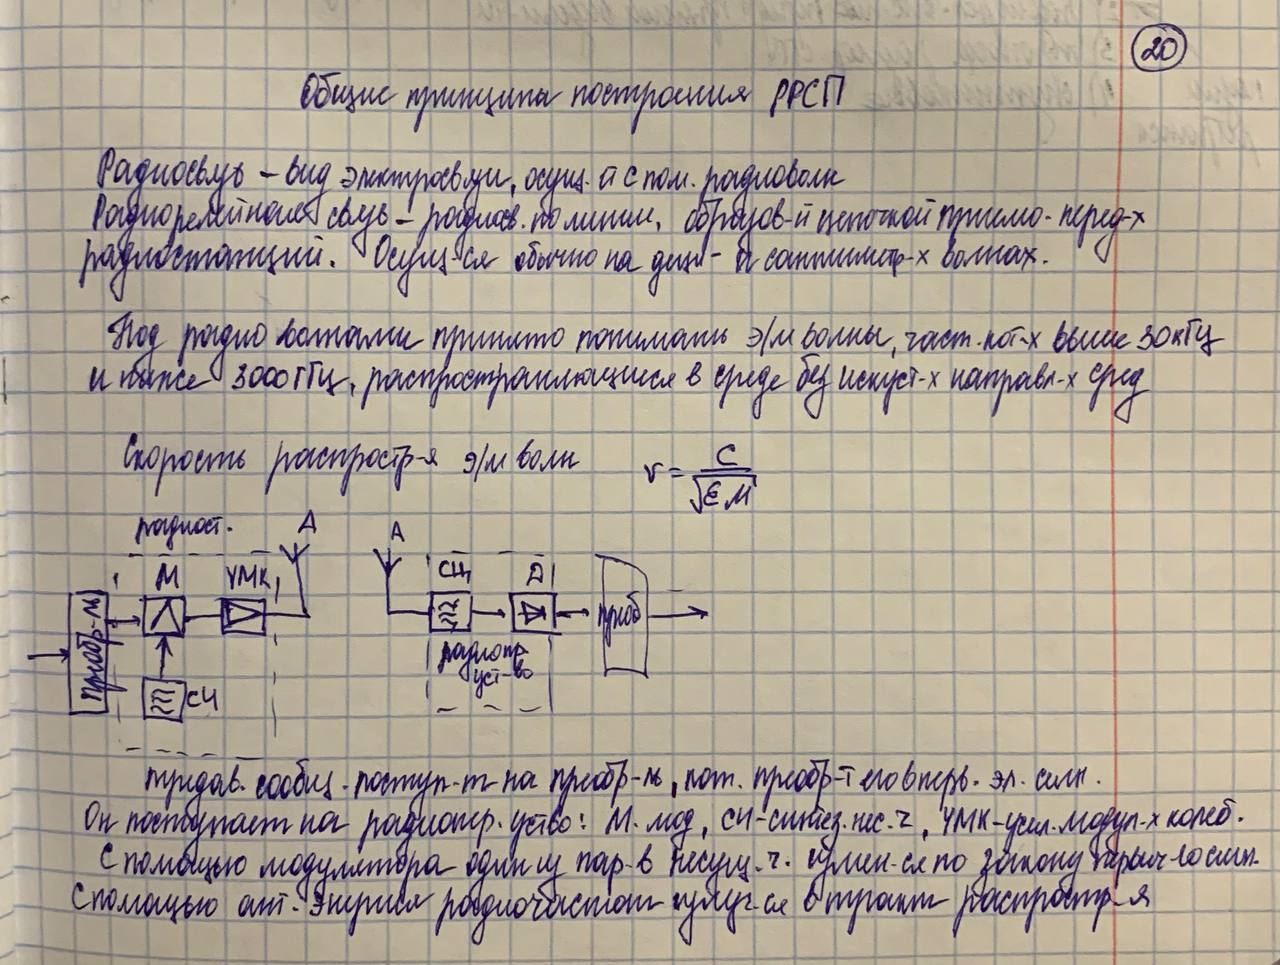 20
Общие принципы построения РРСП
Радиосвязь – вид электросвязи, осущ-й с пом. радиоволн
Радиорелейная связь – радиосв. по линии, образов-й цепочкой приемо-перед-х
радиостанций. Осущ-ся обычно на деци- и сантиметр-х волнах.
Под радио волнами принято понимать э/м волны, част. кот-х выше 30 кГц
и ниже 3000 ГГц, распространяющиеся в среде без искуст-х направл-х сред
Скорость распростр-я э/м волн v = C / √ε μ
радиост. А А
М УМК СЧ Д
Преобр-ль преоб
СЧ радиопр.
уст-во
придав. сообщ. поступ-т на преобр-ль, кот. преобр-т его в перв. эл. сигн.
Он поступает на радиопер. уство: М. мод, СЧ-синтез. нес. ч, УМК-усил. модул-х колеб.
С помощью модулятора один из пар-в несущ. ч. измен-ся по закону первич-го сигн.
С помощью ант. энергия радиочастот излуч-ся в тракт распростр-я